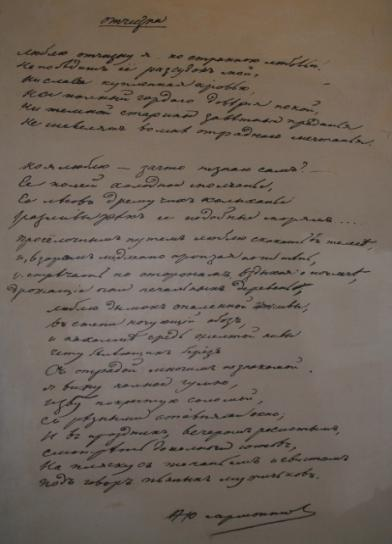 Отчизна
Люблю отчизну я, но странною любовью!
Не победит ее рассудок мой,
Ни слава купленная кровью,
Ни полный гордаго доверия покой,
Ни темной старины заветныя преданья
Не шевелят во мне отраднаго мечтанья.
Но я люблю — за что не знаю сам? —
Ее полей холодное молчанье,
Ее лесов дремучих колыханье
Разливы рек ее подобные морям....
Проселочным путем люблю скакать в телеге,
И, взором медленно пронзая ночи тень,
встречать по сторонам, вздыхая о ночлеге,
дрожащие огни печальных деревень.
люблю дымок спаленной жнивы,
в степи ночующий обоз,
и на холме средь желтой нивы
чету белеющих берез
С отрадой многим незнакомой
я вижу полное гумно,
избу покрытую соломой,
с резными ставнями окно;
И в праздник, вечером росистым,
смотреть до полночи готов,
На пляску с топаньем и свистом
Под говор пьяных мужичков.